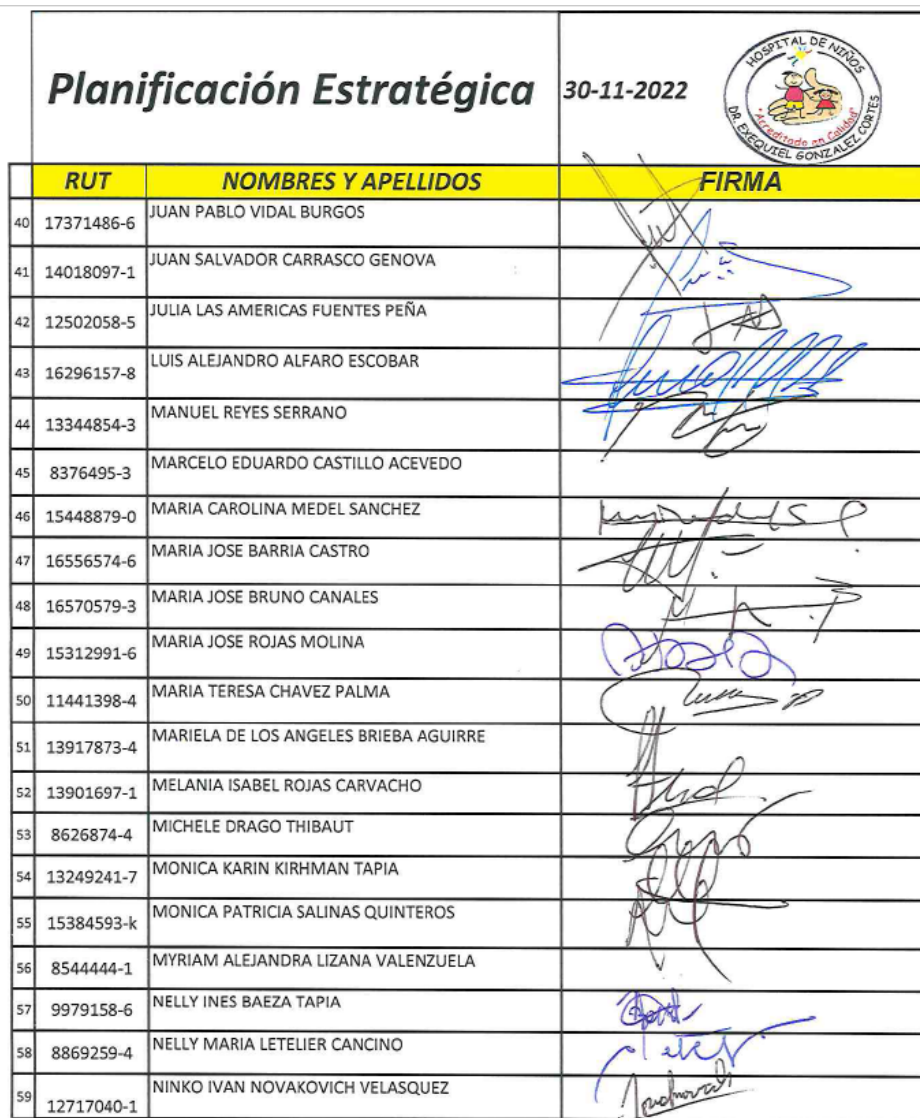 Planificación Estratégica 30-11-2022
HOSPITAL DE NIÑOS
"Acreditado en Calidad"
DR. EXEQUIEL GONZALEZ CORTES
RUT NOMBRES Y APELLIDOS FIRMA
40 17371486-6 JUAN PABLO VIDAL BURGOS
41 14018097-1 JUAN SALVADOR CARRASCO GENOVA
42 12502058-5 JULIA LAS AMERICAS FUENTES PEÑA
43 16296157-8 LUIS ALEJANDRO ALFARO ESCOBAR
44 13344854-3 MANUEL REYES SERRANO
45 8376495-3 MARCELO EDUARDO CASTILLO ACEVEDO
46 15448879-0 MARIA CAROLINA MEDEL SANCHEZ
47 16556574-6 MARIA JOSE BARRIA CASTRO
48 16570579-3 MARIA JOSE BRUNO CANALES
49 15312991-6 MARIA JOSE ROJAS MOLINA
50 11441398-4 MARIA TERESA CHAVEZ PALMA
51 13917873-4 MARIELA DE LOS ANGELES BRIEBA AGUIRRE
52 13901697-1 MELANIA ISABEL ROJAS CARVACHO
53 8626874-4 MICHELE DRAGO THIBAUT
54 13249241-7 MONICA KARIN KIRHMAN TAPIA
55 15384593-k MONICA PATRICIA SALINAS QUINTEROS
56 8544444-1 MYRIAM ALEJANDRA LIZANA VALENZUELA
57 9979158-6 NELLY INES BAEZA TAPIA
58 8869259-4 NELLY MARIA LETELIER CANCINO
59 12717040-1 NINKO IVAN NOVAKOVICH VELASQUEZ